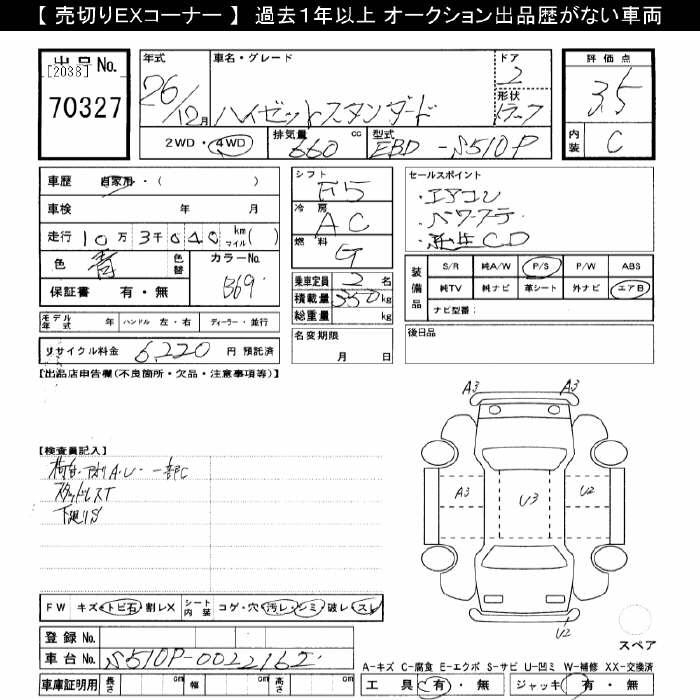 【 売切りEXコーナー 】 過去1年以上 オークション出品歴がない車両
出品 No.
[2038]
70327
年式
26/12月
車名・グレード
ハイゼットスタンダード
ドア
2
形状
トラック
評価点
3.5
内装
C
2WD・4WD
排気量
660 cc
型式
EBD-S510P
車歴 自家用・( )
車検 年 月
走行 10万3千040 km マイル( )
色 青
色替
カラーNo.
B69
保証書 有・無
シフト
F5
冷房
AC
燃料
G
乗車定員 2 名
積載量 350 kg
総重量 kg
セールスポイント
・エアコン
・パワーステ
・純正CD
装備品
S/R 純A/W P/S P/W ABS
純TV 純ナビ 革シート 外ナビ エアB
ナビ型番:
モデル年式 年 ハンドル 左・右 ディーラー・並行
名変期限
月 日
後日品
リサイクル料金 6,220 円 預託済
【出品店申告欄(不良箇所・欠品・注意事項等)】
【検査員記入】
荷台・アオリA.U. 一部C
スタッドレスT
下廻りS
A3 A3
A3 U3 U2
U2
スペア
FW キズ・トビ石・割レX シート内装 コゲ・穴・汚レ・シミ・破レ・スレ
登録 No.
車台 No. S510P-0022162
車庫証明用 長さ cm 幅 cm 高さ cm
A-キズ C-腐食 E-エクボ S-サビ U-凹ミ W-補修 XX-交換済
工具 有・無 ジャッキ 有・無